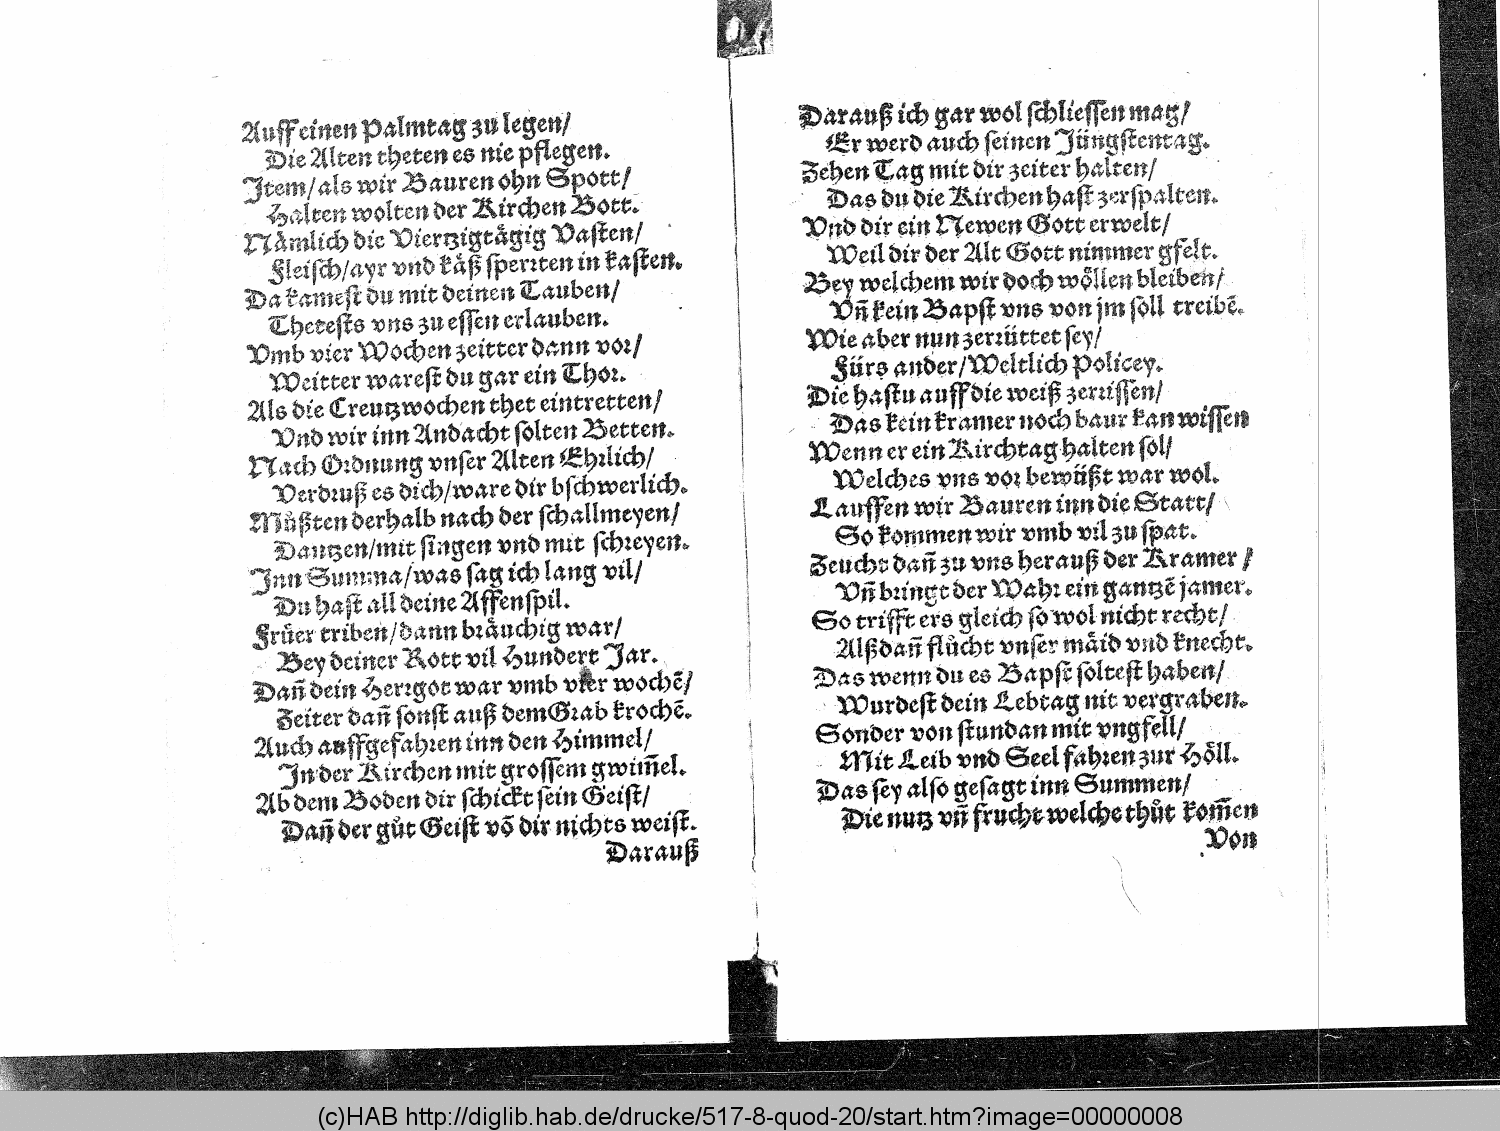 Auff einen Palmtag zu legen/
Die Alten theten es nie pflegen.
Item/als wir Bauren ohn Spott/
Halten wolten der Kirchen Bott.
Nämlich die Viertzigtägig Vasten/
Fleisch/ayr vnd käß sperrten in kasten.
Da kamest du mit deinen Tauben/
Thetests vns zu essen erlauben.
Vmb vier Wochen zeitter dann vor/
Weitter warest du gar ein Thor.
Als die Creutzwochen thet eintretten/
Vnd wir inn Andacht solten Betten.
Nach Ordnung vnser Alten Ehrlich/
Verdruß es dich/ware dir bschwerlich.
Müßten derhalb nach der schallmeyen/
Dantzen/mit singen vnd mit schreyen.
Inn Summa/was sag ich lang vil/
Du hast all deine Affenspil.
Früer triben/dann bräuchig war/
Bey deiner Rott vil Hundert Jar.
Dañ dein Herrgot war vmb vier wochẽ/
Zeiter dañ sonst auß dem Grab krochẽ.
Auch auffgefahren inn den Himmel/
In der Kirchen mit grossem gwim̃el.
Ab dem Boden dir schickt sein Geist/
Dañ der gůt Geist võ dir nichts weist.
Darauß
Darauß ich gar wol schliessen mag/
Er werd auch seinen Jüngstentag.
Zehen Tag mit dir zeiter halten/
Das du die Kirchen hast zerspalten.
Vnd dir ein Newen Gott erwelt/
Weil dir der Alt Gott nimmer gfelt.
Bey welchem wir doch wöllen bleiben/
Vñ kein Bapst vns von jm soll treibẽ.
Wie aber nun zerrüttet sey/
Fürs ander/Weltlich Policey.
Die hastu auff die weiß zerrissen/
Das kein kramer noch baur kan wissen
Wenn er ein Kirchtag halten sol/
Welches vns vor bewüßt war wol.
Lauffen wir Bauren inn die Statt/
So kommen wir vmb vil zu spat.
Zeucht dañ zu vns herauß der Kramer/
Vñ bringt der Wahr ein gantzẽ jamer.
So trifft ers gleich so wol nicht recht/
Alßdañ flůcht vnser mäid vnd knecht.
Das wenn du es Bapst soltest haben/
Wurdest dein Lebtag nit vergraben.
Sonder von stundan mit vngfell/
Mit Leib vnd Seel fahren zur Höll.
Das sey also gesagt inn Summen/
Die nutz vñ frucht welche thůt kom̃en
Von
(c)HAB http://diglib.hab.de/drucke/517-8-quod-20/start.htm?image=00000008